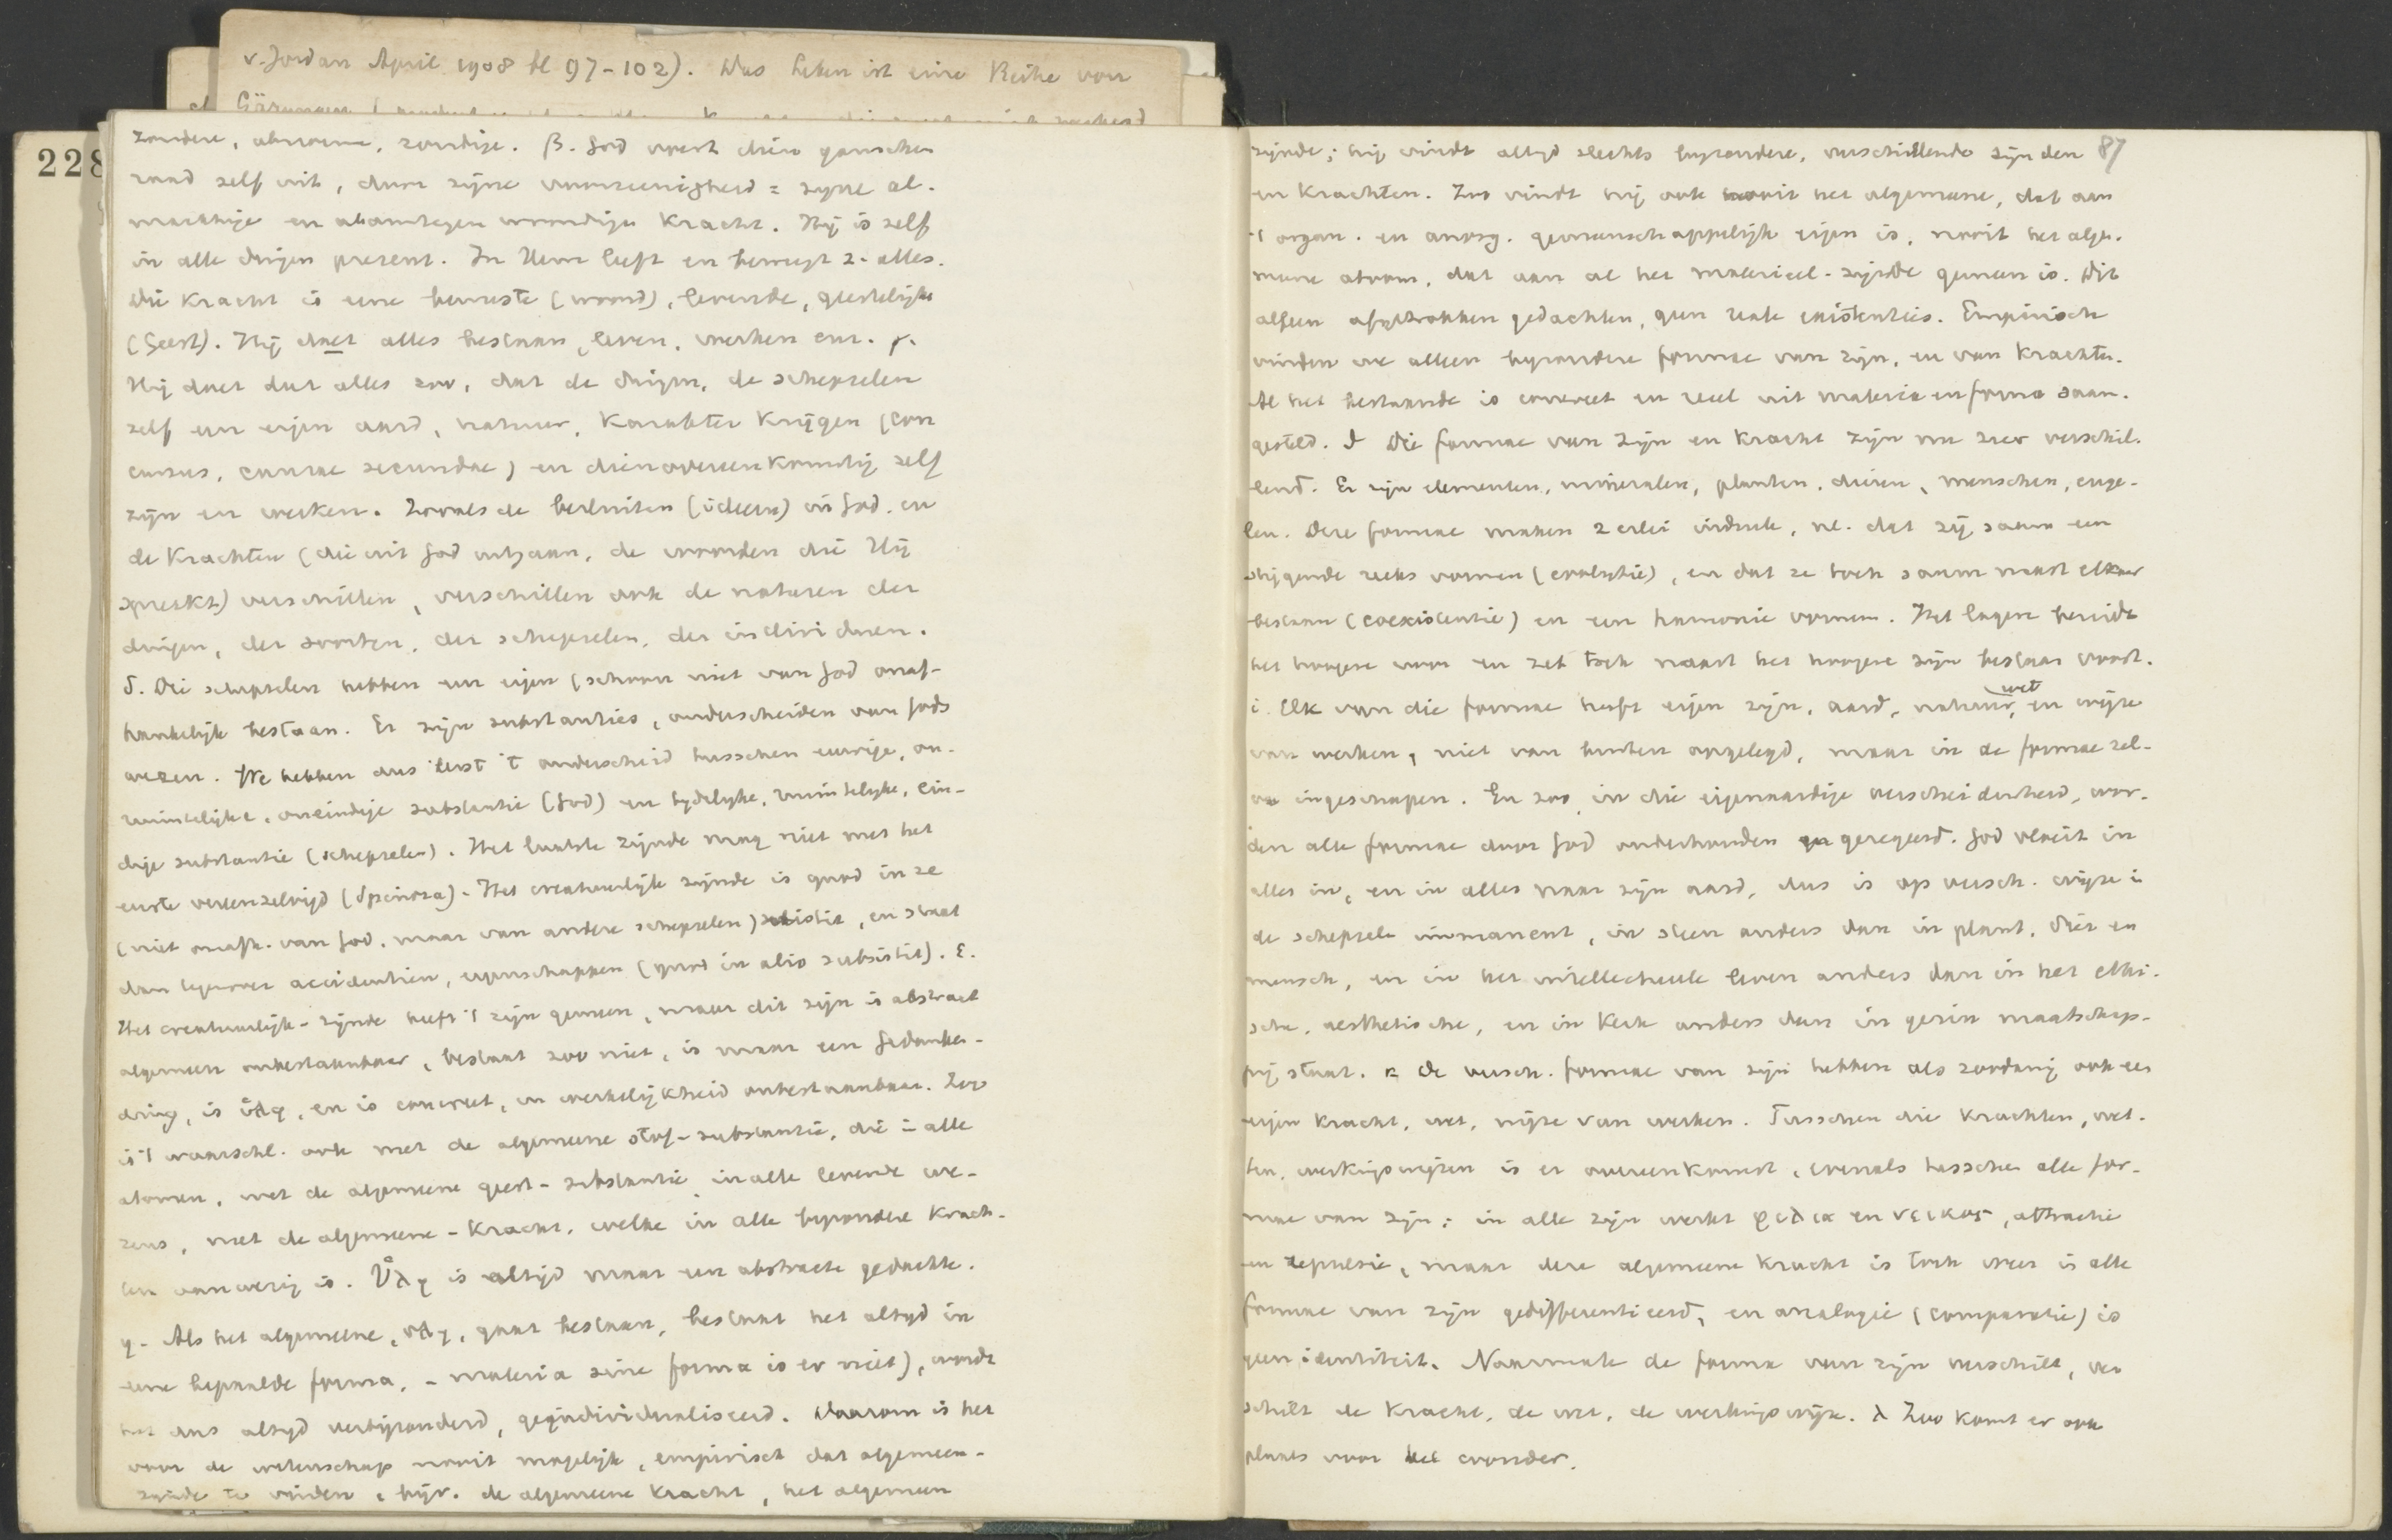 v. Jordan April 1908 bl 97-102). Das Leben ist eine Reihe von
228
zondere, abnorme, zondige. β. God voert dien ganschen
raad zelf uit, door zijne alomtegenwoordige = zijne al-
machtige en alomtegenwoordige Kracht. Hij is zelf
in alle dingen present. In Hem leeft en beweegt z. alles.
Die Kracht is eene bewuste (woord), levende, geestelijke
(Geest). Hij doet alles bestaan, leven, werken enz. γ.
Hij doet dat alles zoo, dat de dingen, de schepselen
zelf een eigen aard, natuur, Karakter krijgen (con
cursus, causae secundae) en dienovereenkomstig zelf
zijn en werken. Zooals de besluiten (ideeën) in God, en
de Krachten (die uit God uitgaan, de woorden die Hij
spreekt) verschillen, verschillen ook de naturen der
dingen, der soorten, der schepselen, der individuen.
δ. Die schepselen hebben een eigen (schoon niet van God onaf-
hankelijk bestaan. Er zijn substanties, onderscheiden van Gods
wezen. We hebben dus eerst 't onderscheid tusschen eeuwige, on-
ruimtelijke, oneindige substantie (God) en tydelyke, ruimtelyke, ein-
dige substantie (schepselen). Het laatste zijnde mag niet met het
eerste vereenzelvigd (Spinoza). Het creatuurlijk zijnde is quod in se
(niet onafh. van God, maar van andere schepselen) subsistit, en staat
dan tegenover accidentien, eigenschappen (quod in alio subsistit). ε.
Het creatuurlijk-zijnde heeft 't zijn gemeen, maar dit zijn is abstract
algemeen onbestaanbaar, bestaat zoo niet, is maar een Gedanken-
ding, is ὕλη, en is concreet, in werkelijkheid onbestaanbaar. Zoo
is 't waarschl. ook met de algemeene stof-substantie, die in alle
atomen, met de algemeene geest-substantie in alle levende we-
zens, met de algemeene-Kracht, welke in alle byzondere Krach-
ten aanwezig is. Ὕλη is altijd maar een abstracte gedachte.
η- Als het algemeene, ὕλη, gaat bestaan, bestaat het altyd in
eene bepaalde forma, - materia sine forma is er niet), wordt
het dus altyd verbijzonderd, geïndividualiseerd. Daarom is het
voor de wetenschap nooit mogelijk, empirisch dat algemeen-
zijnde te vinden, bijv. de algemeene Kracht, het algemeen
87
zijnde; hij vindt altyd slechts byzondere, verschillende zijnden
en Krachten. Zoo vindt hij ook nooit het algemeene, dat aan
't organ. en anorg. gemeenschappelijk eigen is, nooit het alge-
meene atoom, dat aan al het materieel-zijnde gemeen is. Dit
alleen afgetrokken gedachten, geen reale existenties. Empirisch
vinden we alleen byzondere formae van zijn, en van Krachten.
Al het bestaande is concreet en reeel uit materia en forma saam-
gesteld. ϑ Die formae van zijn en Kracht zijn nu zeer verschil-
lend. Er zijn elementen, mineralen, planten, dieren, menschen, enge-
len. Deze formae maken 2 erlei indruk, nl. dat zij saam een
stijgende reeks vormen (evolutie), en dat ze toch saam naast elkaar
bestaan (coexistentie) en een harmonie vormen. Het lagere bereidt
het hoogere voor en zet toch naast het hoogere zijn bestaan voort.
ι. Elk van die formae heeft eigen zijn, aard, natuur, wet en wijze
van werken, niet van buiten opgelegd, maar in de formae zel-
ve ingeschapen. En zoo, in die eigenaardige verscheidenheid, wor-
den alle formae door God onderhouden en geregeerd. God werkt in
alles in, en in alles naar zijn aard, dus is op versch. wijze in
de schepsele immanent, in steen anders dan in plant, dier en
mensch, en in het intellectueele leven anders dan in het ethi-
sche, aesthetische, en in Kerk anders dan in gezin maatschap-
pij staat. κ De versch. formae van zijn hebben als zoodanig ook een
eigen Kracht, wet, wijze van werken. Tusschen die Krachten, wet-
ten, werkingswijzen is er overeenkomst, evenals tusschen alle for-
mae van zijn; in alle zijn werkt φιλια en νεικος, attractie
en repulsie, maar deze algemeene Kracht is toch weer in alle
formae van zijn gedifferentieerd, en analogie (comparatie) is
geen identiteit. Naarmate de forma van zijn verschilt, ver
schilt de Kracht, de wet, de werkingswijze. λ Zoo komt er ook
plaats voor het wonder.